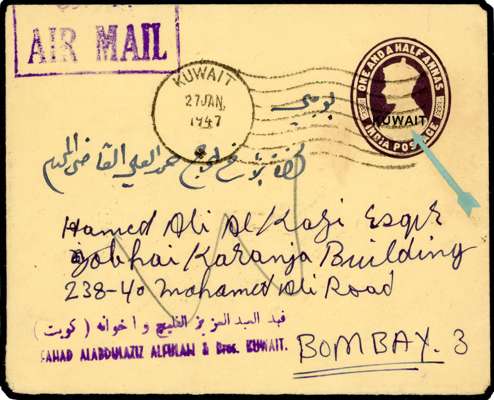 AIR MAIL
KUWAIT
27 JAN,
1947
ONE AND A HALF ANNAS
KUWAIT
INDIA POSTAGE
بومبي
Hamed Ali Al Kazi Esqr
Building
238-40 Mohamed Ali Road
فهد العبد العزيز الفليج و اخوانه ( كويت )
FAHAD ALABDULAZIZ ALFULAIJ & Bros. KUWAIT.
BOMBAY. 3